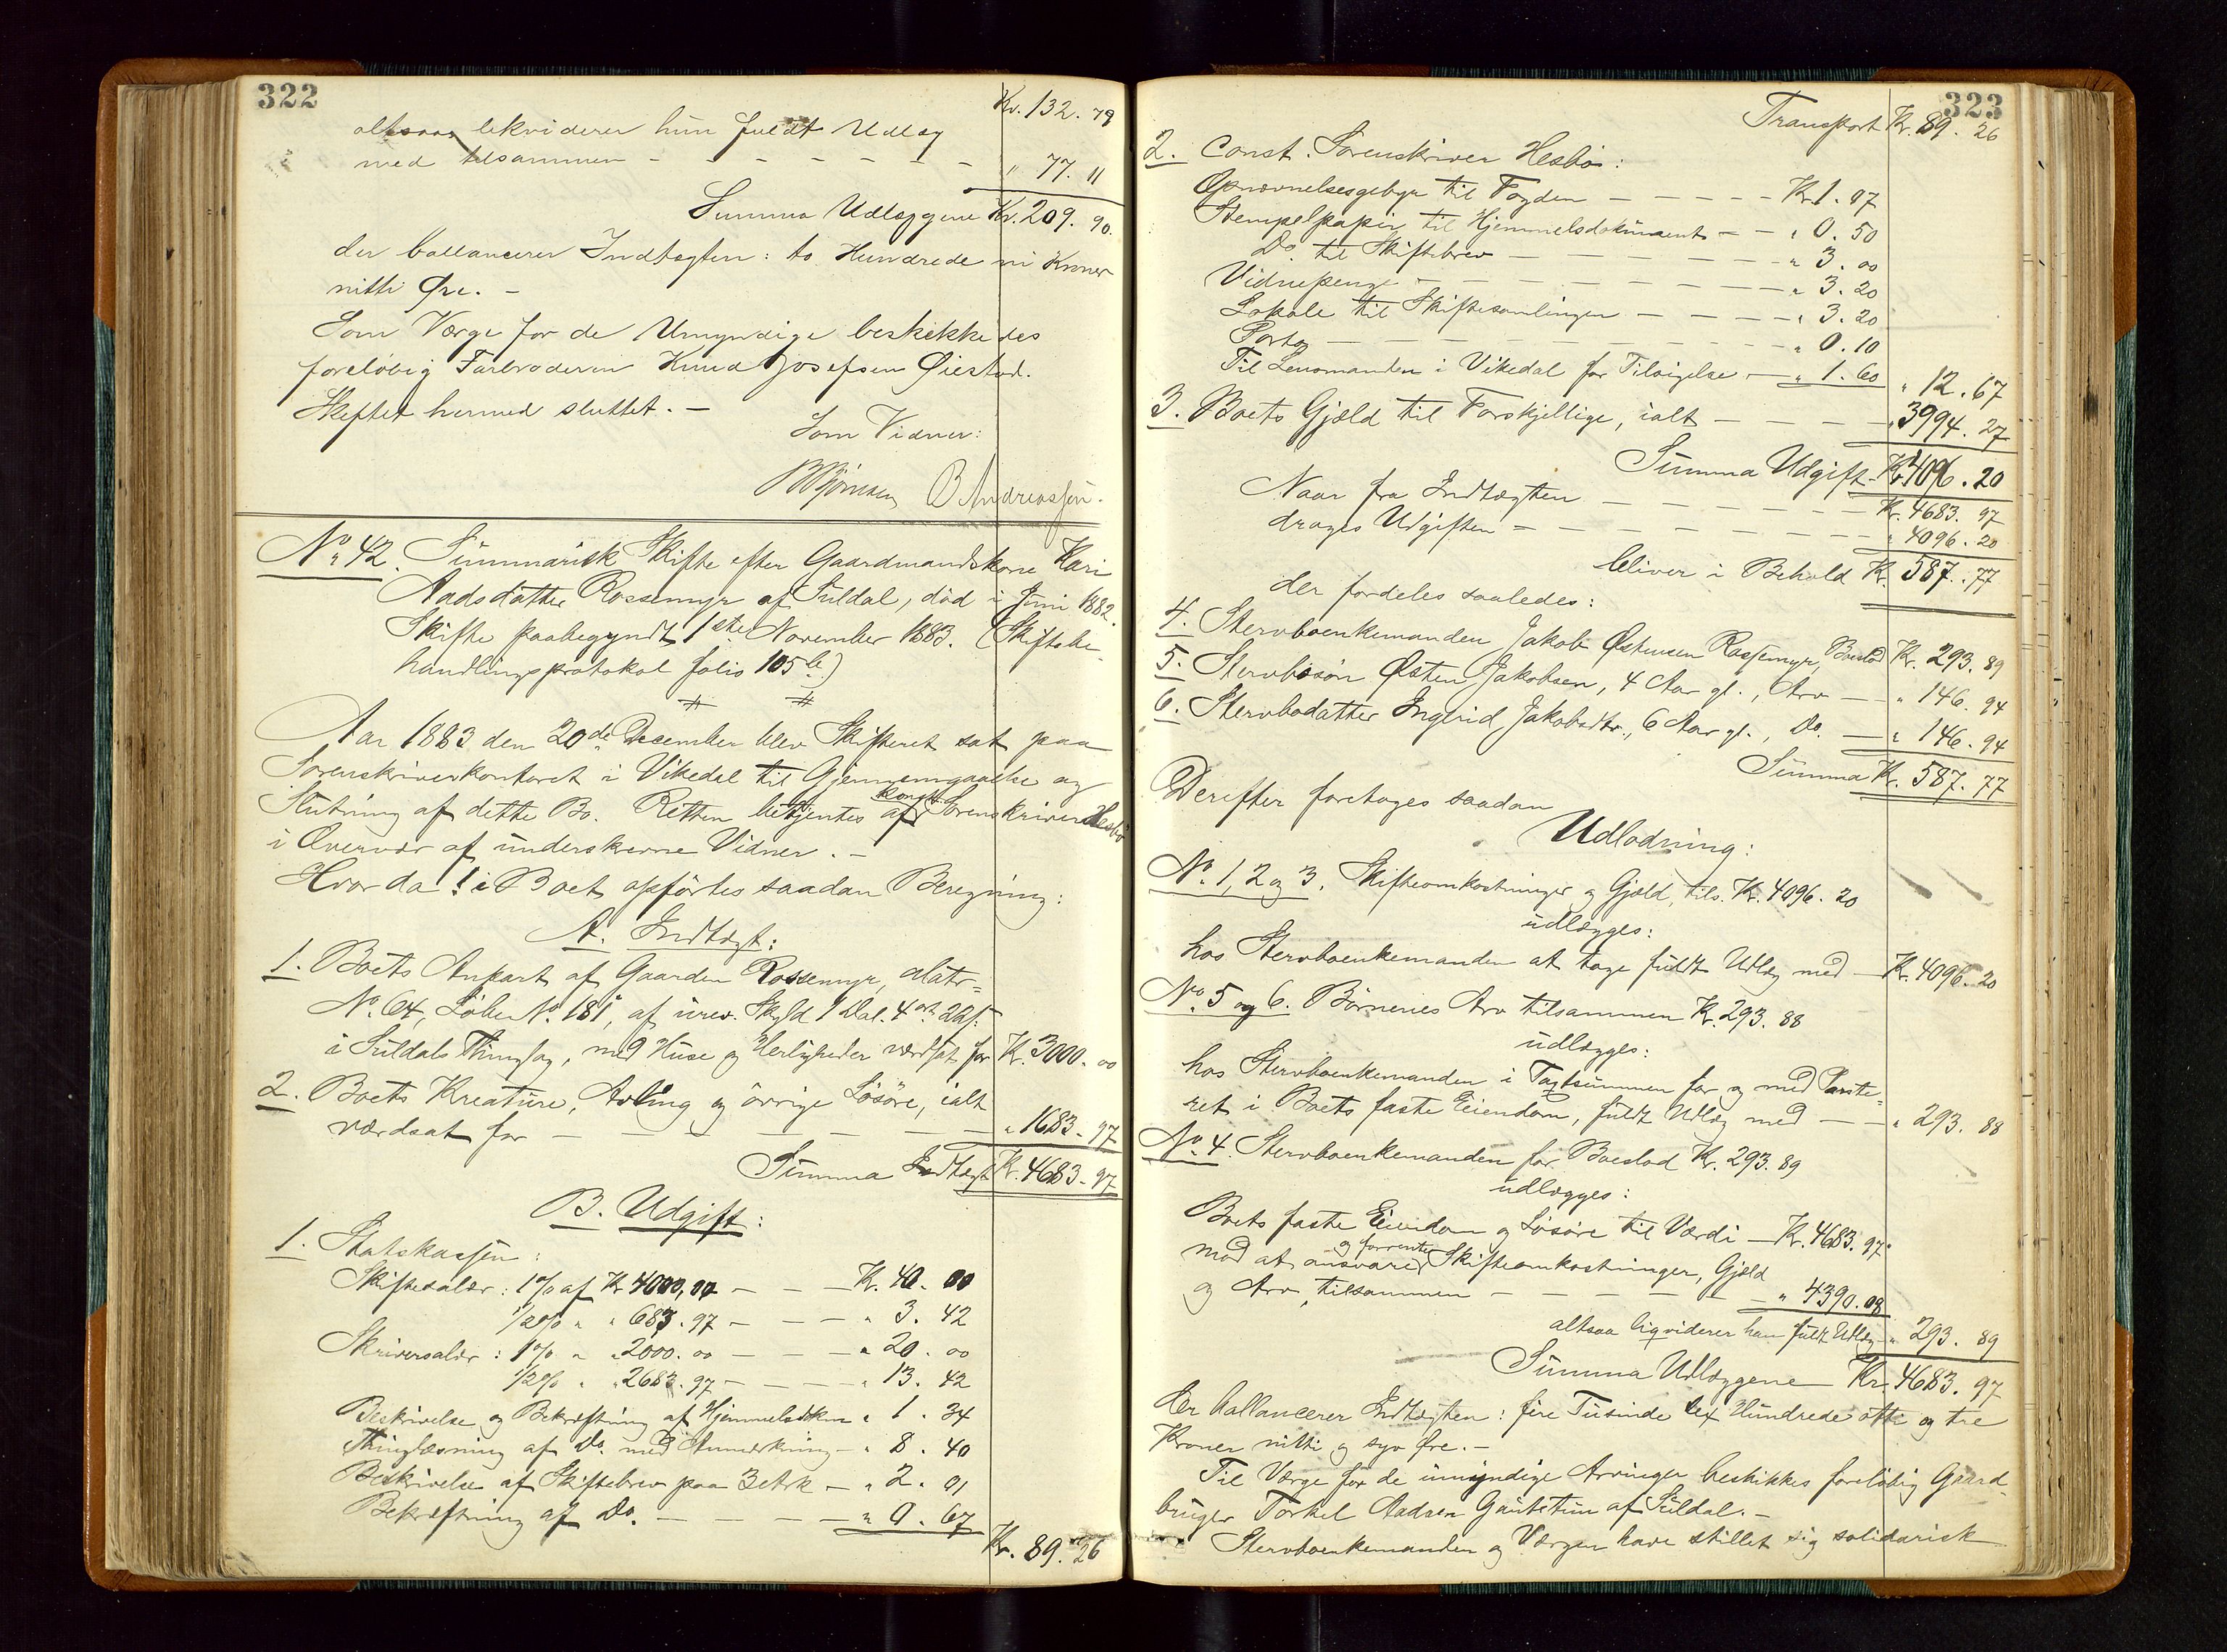 322
Kr. 132. 79
altsaa likviderer hun fuldt Udlæg
med tilsammen - - - - - - - " 77. 11
Summa Udlæggene Kr. 209. 90.
der ballancerer Indtægten: to Hundrede ni Kroner
nitti Øre. -
Som Værge for de Umyndige beskikkedes
foreløbig Farbroderen Knud Josefsen Øiestad.
Skiftet hermed sluttet. -
Som Vidner:
B Andreassen.
No 42. Summarisk Skifte efter Gaardmandskone Kari
Aadsdatter Rossemyr af Suldal, død i Juni 1882.
Skifte paabegyndt 1ste November 1883. (Skiftebe-
handlingsprotokol folio 105 b.)
Aar 1883 den 20de December blev Skifteret sat paa
Sorenskriverkontoret i Vikedal til Gjennemgaaelse og
Slutning af dette Bo. Retten betjentes af konst. Sorenskriver Hesbø
i Overvær af underskrevne Vidner. -
Hvorda! i Boet opførtes saadan Beregning:
A. Indtægt:
1. Boets Anpart af Gaarden Rossemyr, Matr-
No. 64, Løbe No. 181, af urev. Skyld 1 Dal. 4 ort 2 ß.
i Suldals Thinglag, med Huse og Herligheder værdsat for Kr. 3000. 00
2. Boets Kreature, Avling og øvrige Løsøre, ialt
værdsat for - - - - - - - " 1683. 97
Summa Indtægt Kr. 4683. 97
B. Udgift:
1. Statskassen:
Skiftesalær: 1% af Kr 4000,00 - - - Kr. 40. 00
1/2% " " 683. 97 - - - " 3. 42
Skriversalær: 1% " " 2000. 00 - - - " 20. 00
1/2% " " 2683. 97 - - - " 13. 42
Beskrivelse og Bekræftning af Hjemmelsdokum " 1. 34
Thinglæsning af Do. med Anmerkning - " 8. 40
Beskrivelse af Skiftebrev paa 3 Ark - " 2. 01
Bekræftning af Do. - - - - " 0. 67
Kr. 89. 26
323
Transport Kr. 89. 26
2. Const. Sorenskriver Hesbø:
Opnævnelsesgebyr til Fogden - - - - - Kr 1. 07
Stempelpapir til Hjemmelsdokument - - " 0. 50
Do. til Skiftebrev - - - - - " 3. 00
Vidnepenge - - - - - - - " 3. 20
Lokale til Skiftesamlingen - - - - " 3. 20
Porto - - - - - - - - " 0. 10
Til Lensmanden i Vikedal for Tilsigelse - " 1. 60 " 12. 67
3. Boets Gjæld til Forskjellige, ialt - - - - " 3994. 27
Summa Udgift Kr 4096. 20
Naar fra Indtægten - - - - - - - Kr. 4683. 97
drages Udgiften - - - - - - - - " 4096. 20
bliver i Behold Kr. 587. 77
der fordeles saaledes:
4. Stervboenkemanden Jakob Østensen Rossemyr, Boeslod Kr. 293. 89
5. Stervbosøn Østen Jakobsen, 4 Aar gl., Arv - " 146. 94
6. Stervbodatter Ingbrid Jakobsdtr., 6 Aar gl., Do. - " 146. 94
Summa Kr. 587. 77
Derefter foretoges saadan
Udlodning:
No. 1, 2 og 3. Skifteomkostninger og Gjæld, tils. Kr. 4096. 20
udlægges:
hos Stervboenkemanden at tage fuldt Udlæg med - Kr. 4096. 20
No. 5 og 6. Børnenes Arv tilsammen Kr. 293. 88
udlægges:
hos Stervboenkemanden i Taxtsummen for og med Pante-
ret i Boets faste Eiendom, fuldt Udlæg med - - " 293. 88
No. 4. Stervboenkemanden for Boeslod Kr. 293. 89
udlægges:
Boets faste Eiendom og Løsøre til Værdi - Kr. 4683. 97.
mod at ansvare og forrente Skifteomkostninger, Gjæld
og Arv, tilsammen - - - - - - - " 4390. 08
altsaa liqviderer han fuldt Udlæg - " 293. 89
Summa Udlæggene Kr. 4683. 97
der ballancerer Indtægten: fire Tusinde sex Hundrede otti og tre
Kroner nitti og syv Øre. -
Til Værge for de umyndige Arvinger beskikkes foreløbig Gaard-
bruger Torkel Aadsen Gautetun af Suldal. -
Stervboenkemanden og Værgen have stillet sig solidarisk